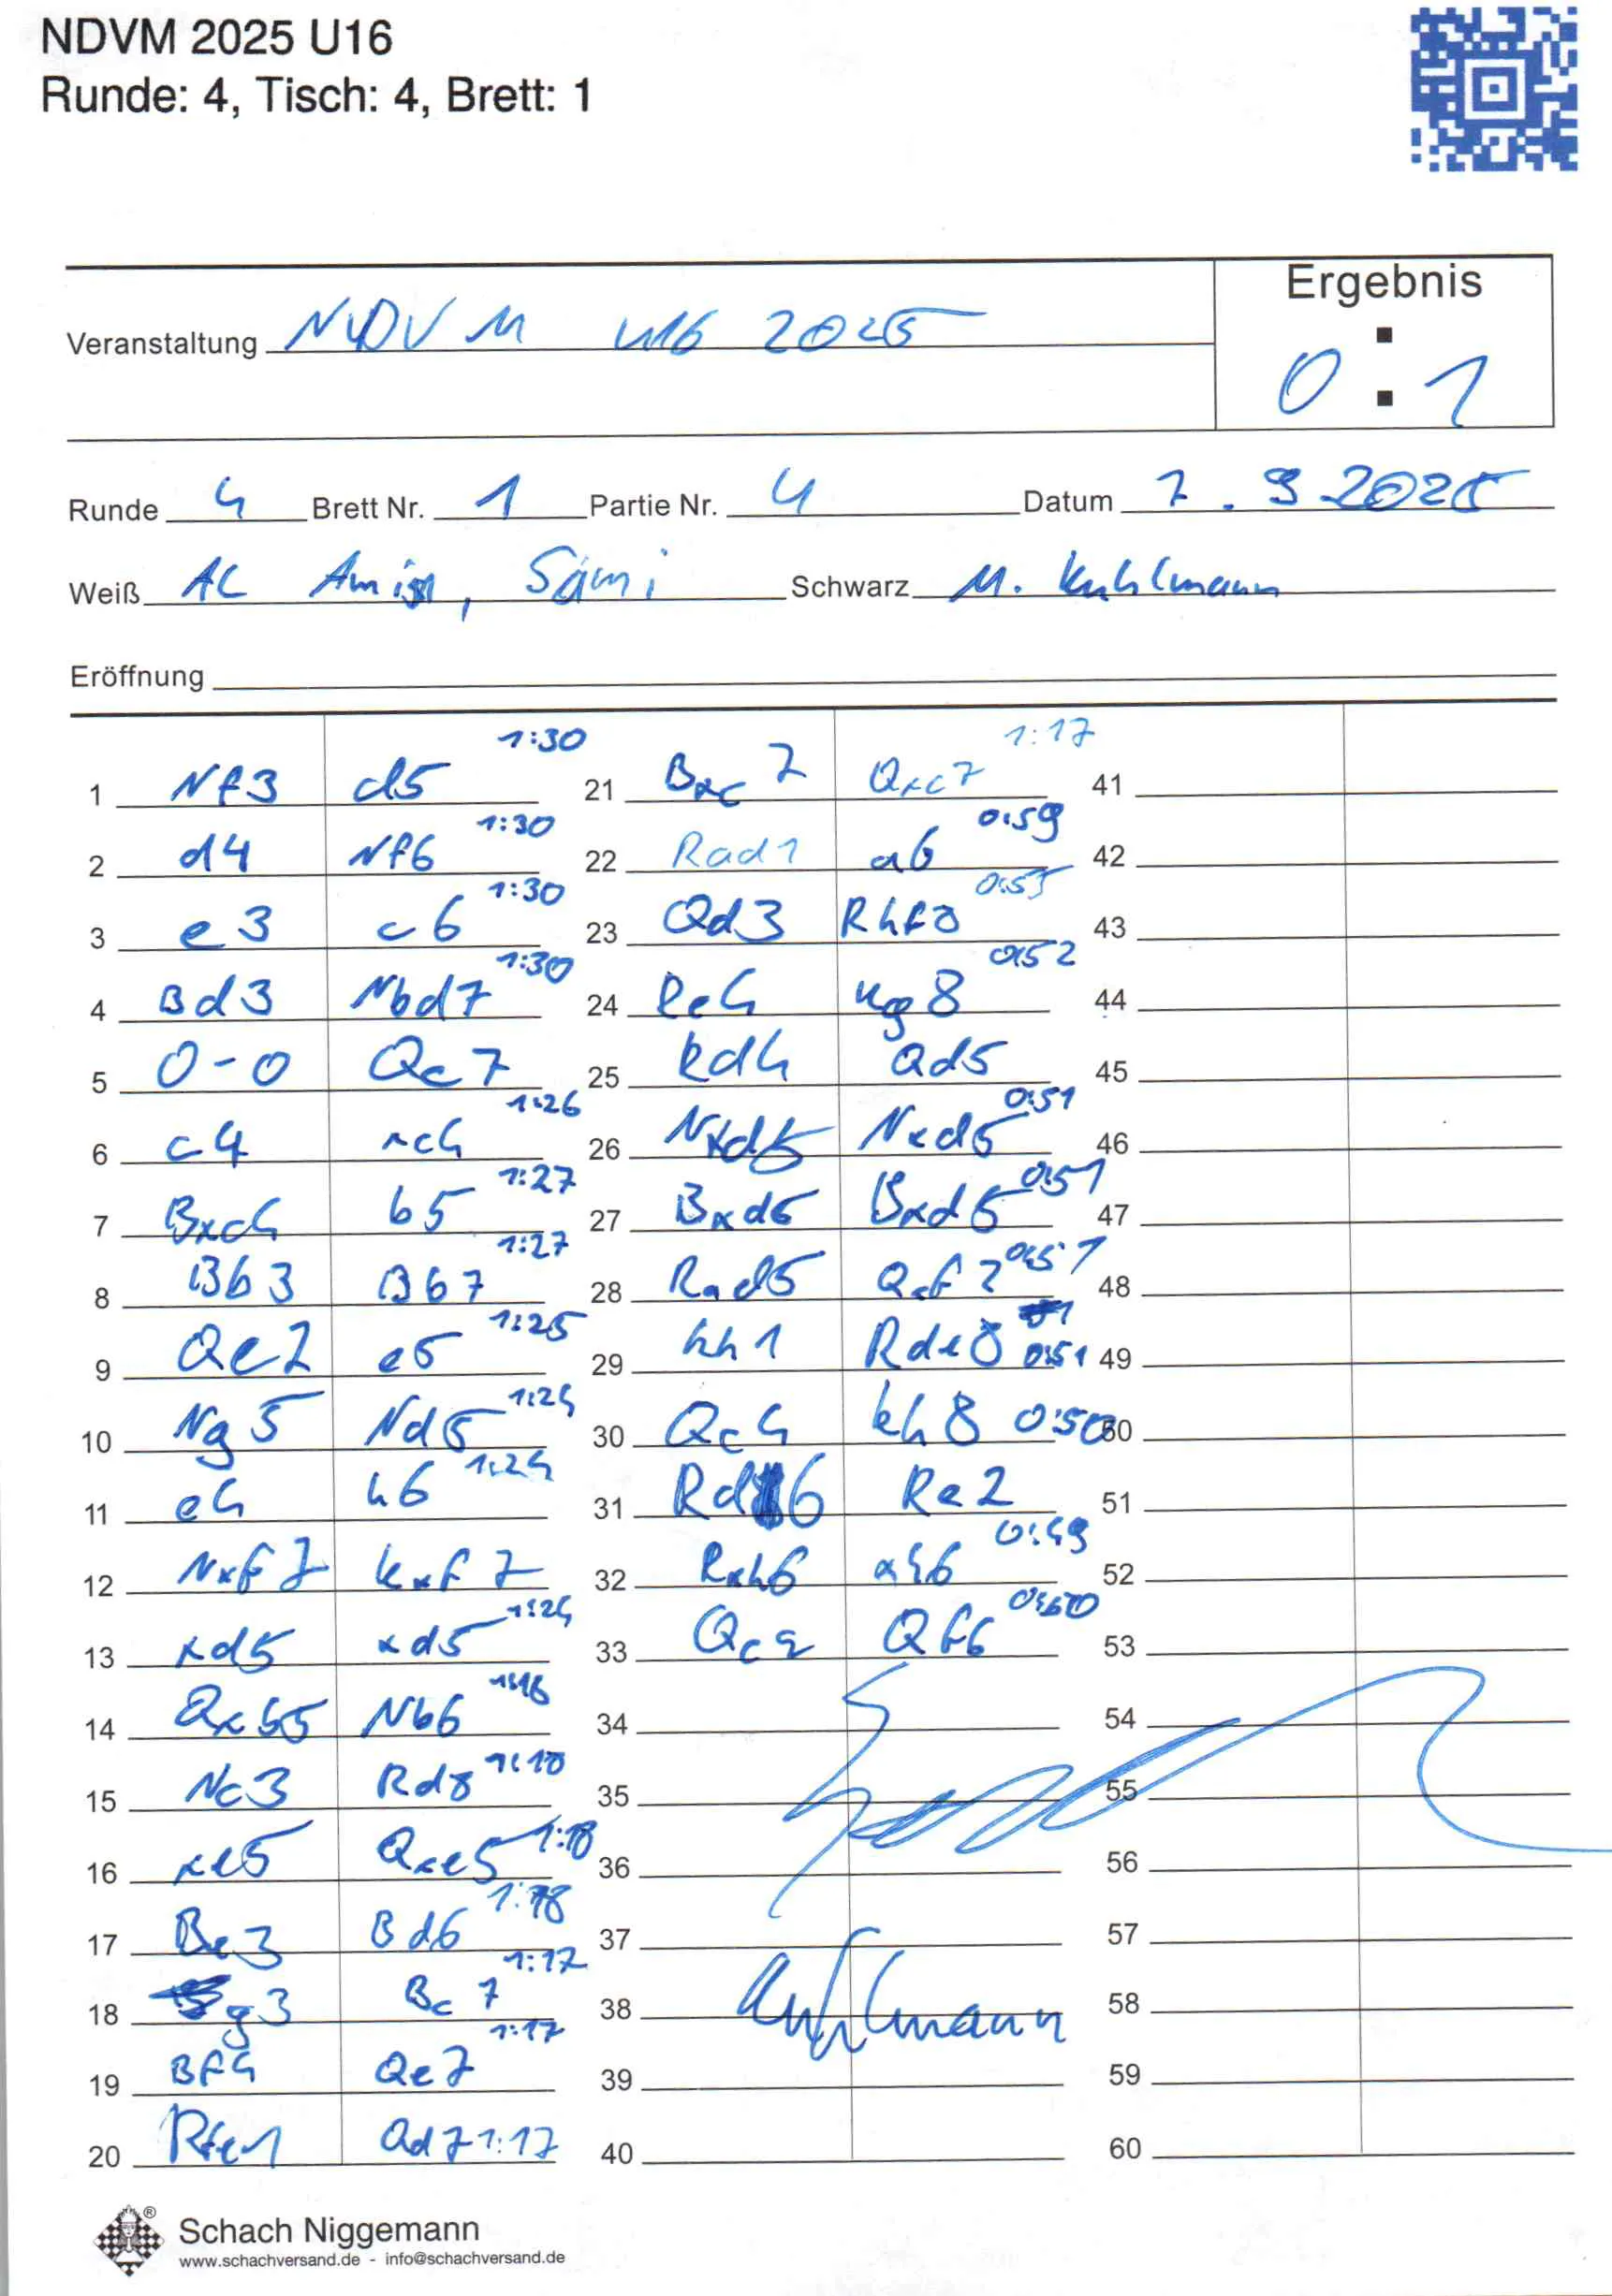 NDVM 2025 U16
Runde: 4, Tisch: 4, Brett: 1
Ergebnis
Veranstaltung NDVM U16 2025
0 : 1
Runde 4 Brett Nr. 1 Partie Nr. 4 Datum 7.9 2025
Weiß Al Amin, Sami Schwarz M. Kuhlmann
Eröffnung
1 Nf3 d5 1:30
2 d4 Nf6 1:30
3 e3 c6 1:30
4 Bd3 Nbd7 1:30
5 0-0 Qc7
6 c4 xc4 1:26
7 Bxc4 b5 1:27
8 Bb3 Bb7 1:27
9 Qe2 e5 1:25
10 Ng5 Nd5 1:24
11 e4 h6 1:24
12 Nxf7 Kxf7
13 xd5 xd5 1:24
14 Qxb5 Nb6
15 Nc3 Rd8 1:18
16 xe5 Qxe5 1:18
17 Be3 Bd6 1:18
18 g3 Bc7 1:17
19 Bf4 Qe7 1:17
20 Rfe1 Qd7 1:17
21 Bxc7 Qxc7 1:17
22 Rad1 a6 0:59
23 Qd3 Rhf8 0:53
24 Re4 Kg8 0:52
25 Rd4 Qd5
26 Nxd5 Nxd5 0:51
27 Bxd5 Bxd5 0:51
28 Rxd5 Qxf2 0:51
29 Kh1 Rde8 0:51
30 Qc4 Kh8 0:50
31 Rd6 Re2
32 Rxh6 xh6 0:49
33 Qf6
34
35
36
37
38 Kuhlmann
39
40
41
42
43
44
45
46
47
48
49
50
51
52
53
54
55
56
57
58
59
60
Schach Niggemann ®
www.schachversand.de - info@schachversand.de